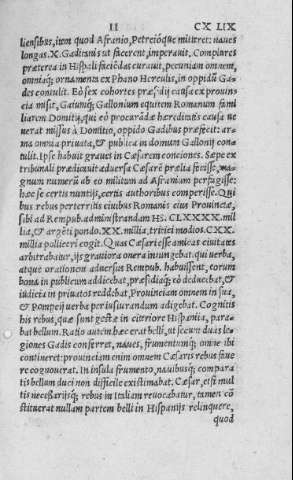 II CXLIX
liensibus, item quod Afranio, Petreióque mitteret: naues
longas. X. Gaditanis ut facerent, imperauit. Complures
præterea in Hispali faciēdas curauit, pecuniam omnem,
omniaq; ornamenta ex Phano Herculis, in oppidū Ga-
des contulit. Eò sex cohortes præsidij causa ex prouin
cia misit, Gaiumq; Gallonium equitem Romanum fami
liarem Domitij, qui eò procurādæ hæreditatis causa ue
nerat missus à Domitio, oppido Gadibus præfecit: ar-
ma omnia priuata, & publica in domum Gallonij con-
tulit. Ipse habuit graues in Cæsarem conciones. Sæpe ex
tribunali prædicauit aduersa Cæsarē prælia fecisse, ma
gnum numerū ab eo militum ad Afranium perfugisse:
hæc se certis nuntijs, certis authoribus comperisse. Qui
bus rebus perterritis ciuibus Romanis eius Prouinciæ,
sibi ad Rempub. administrandam HS. CLXXXX. mil
lia, & argēti pondo. XX. millia, tritici modios. CXX.
millia polliceri coegit. Quas Cæsari esse amicas ciuitates
arbitrabatur, ijs grauiora onera iniungebat. qui uerba,
atque orationem aduersus Rempub. habuissent, eorum
bona in publicum addicebat, præsidiaq; eò deducebat, &
iudicia in priuatos reddebat, Prouinciam omnem in sua,
& Pompeij uerba periusiurandum adigebat. Cognitis
his rebus, quæ sunt gestæ in citeriore Hispania, para-
bat bellum. Ratio autem hæc erat belli, ut secum duas le
giones Gadis conferret, naues, frumentumq; omne ibi
contineret: prouinciam enim omnem Cæsaris rebus faue
re cognouerat. In insula frumento, nauibusq; compara
tis bellum duci non difficile existimabat. Cæsar, etsi mul
tis necessarijsq; rebus in Italiam reuocabatur, tamen cō
stituerat nullam partem belli in Hispanijs relinquere,
quod